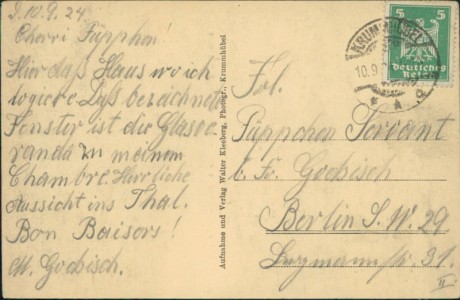 D. 10.9.24
Cherri Püpphen!
Hier daß Haus wo ich
logiere. Daß bezeichnete
Fenster ist die Glasve
randa zu meinem
Chambre. Herrliche
Aussicht ins Thal.
Bon Baisers!
M. Gochisch.
Aufnahme und Verlag Walter Kleeberg, Photogr., Krummhübel
KRUMMHÜBEL
10.9.
* A
5 5
Deutsches
Reich
Frl.
Püppchen Servant
b. Fr. Gochisch
Berlin S.W. 29
31.
II